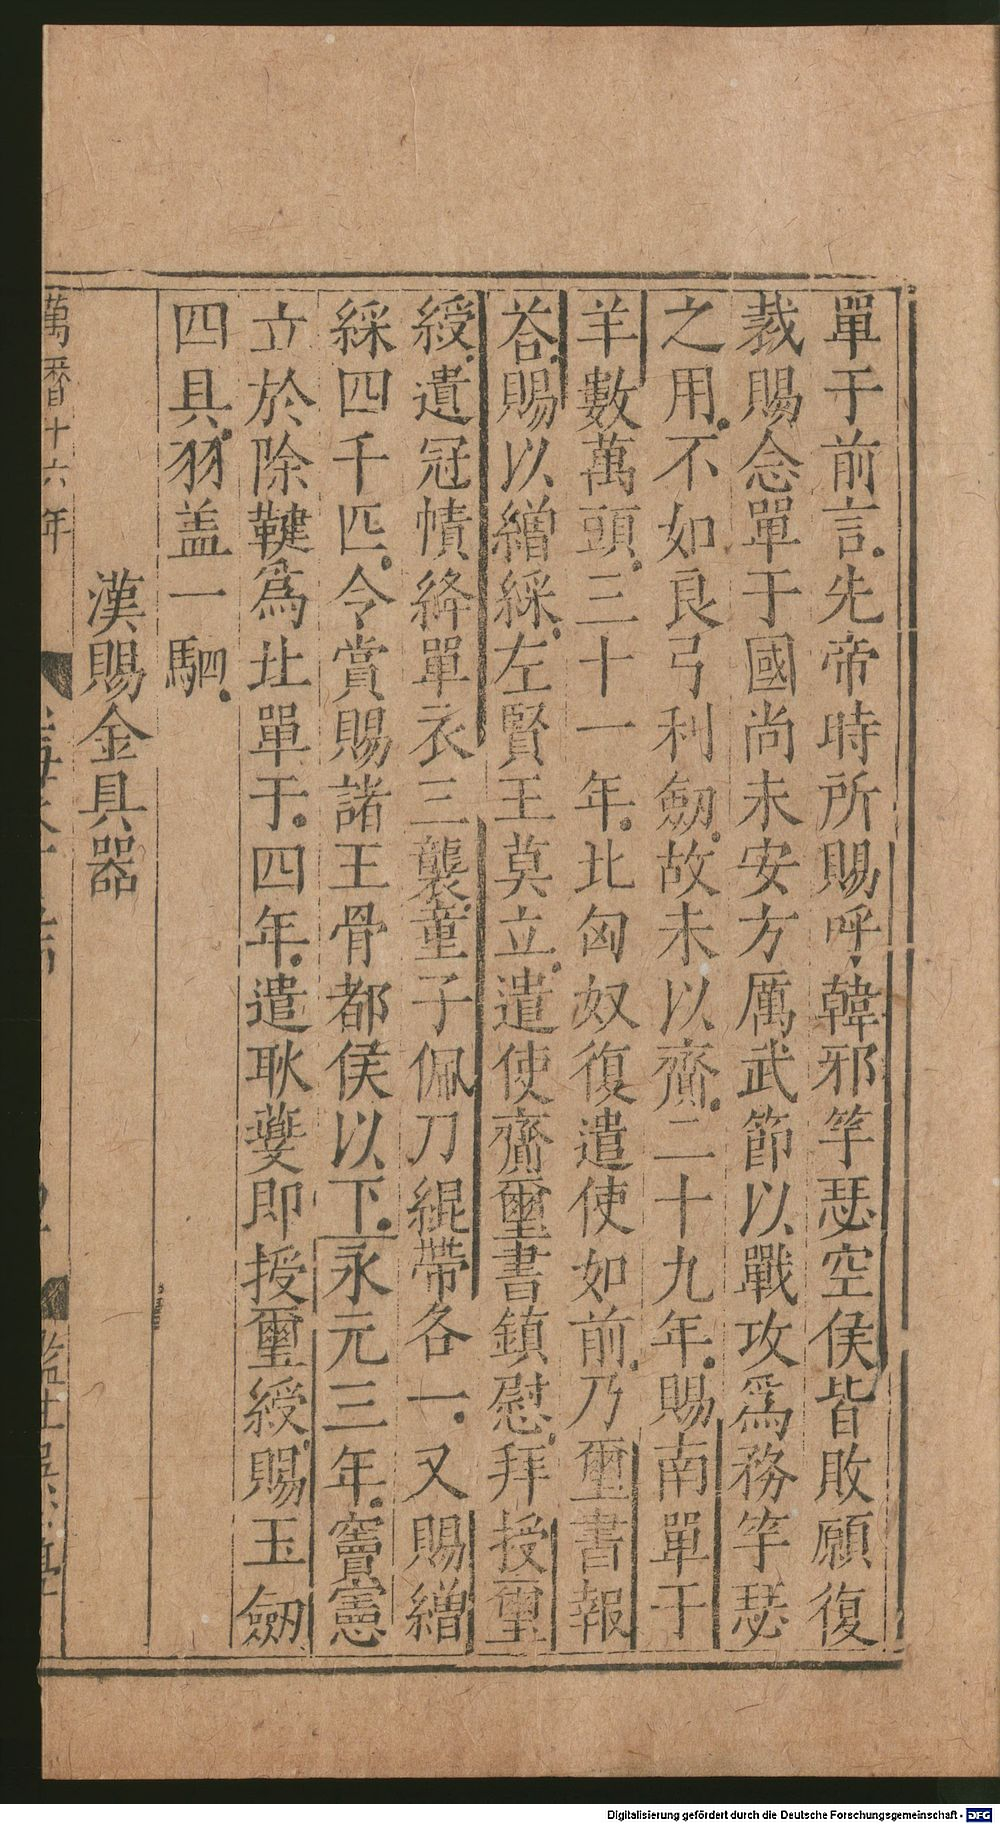 單于前言先帝時所賜呼韓邪竽瑟空侯皆敗願復
裁賜念單于國尚未安方厲武節以戰攻爲務竽瑟
之用不如良弓利劒故未以齎二十九年賜南單于
羊數萬頭三十一年北匈奴復遣使如前乃璽書報
荅賜以繒綵左賢王莫立遣使齎璽書鎮慰拜授璽
綬遺冠幘絳單衣三襲童子佩刀緄帶各一又賜繒
綵四千匹令賞賜諸王骨都侯以下永元三年竇憲
立於除鞬爲北單于四年遣耿夔即授璽綬賜玉劒
四具羽盖一駟
漢賜金具器
萬曆十六年
Digitalisierung gefördert durch die Deutsche Forschungsgemeinschaft - DFG